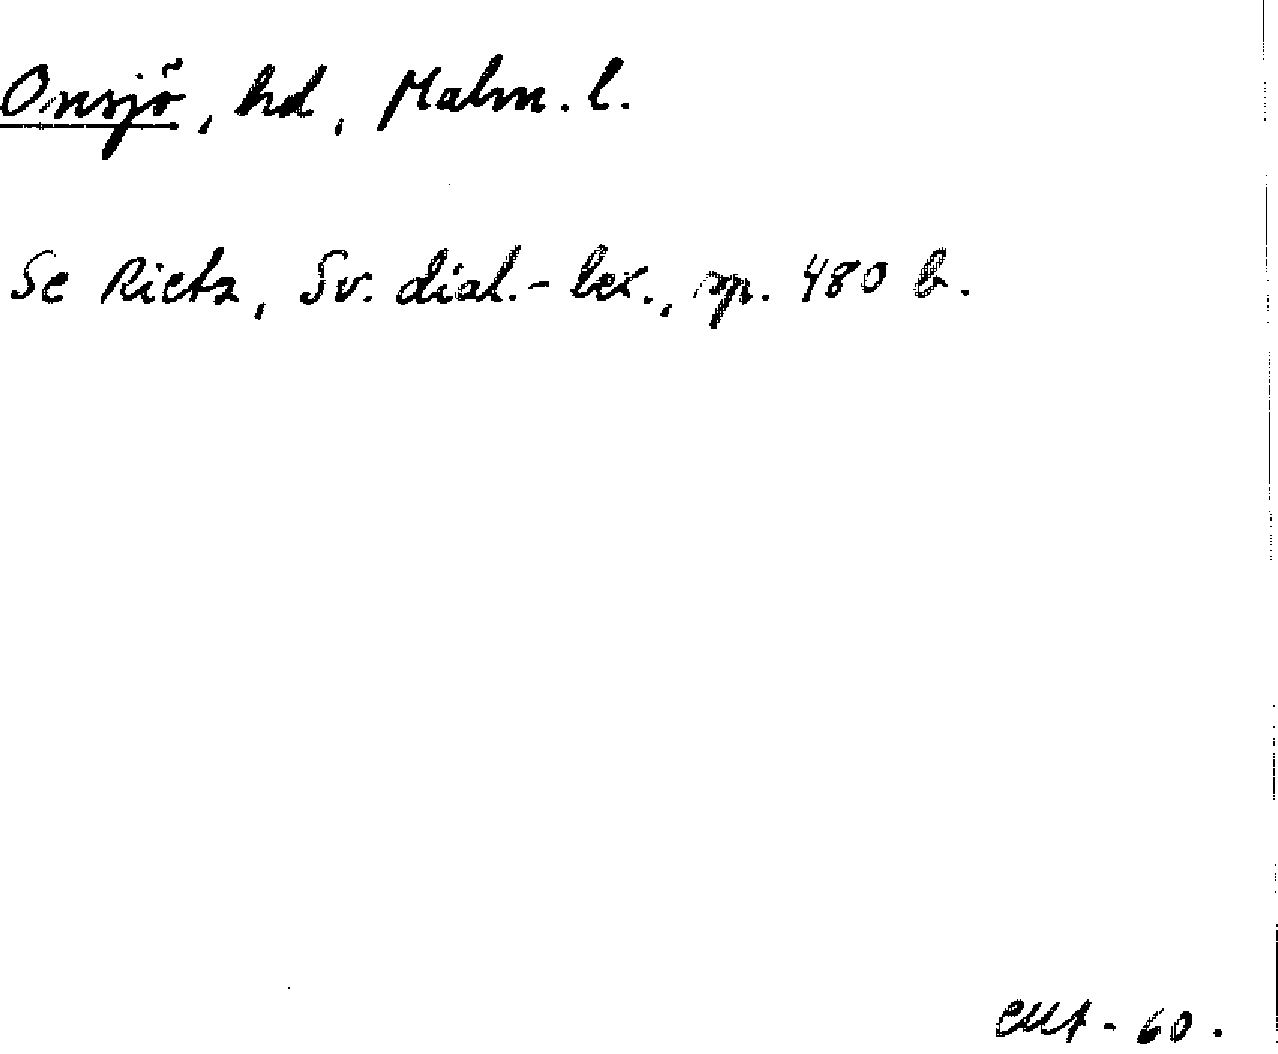 Onsjö, hd, Malm. l.
Se Rietz, Sv. dial.-lex., sp. 480 b.
- 60.